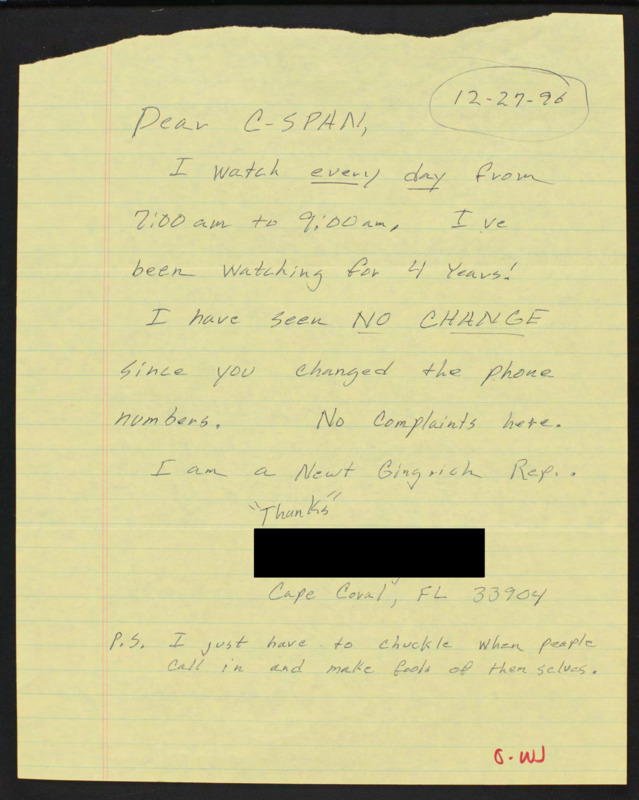 12-27-96
Dear C-SPAN,
I watch every day from
7:00 am to 9:00 am. I've
been watching for 4 years!
I have seen NO CHANGE
since you changed the phone
numbers. No complaints here.
I am a Newt Gingrich Rep..
"Thanks"
Cape Coral, FL 33904
P.S. I just have to chuckle when people
call in and make fools of them selves.